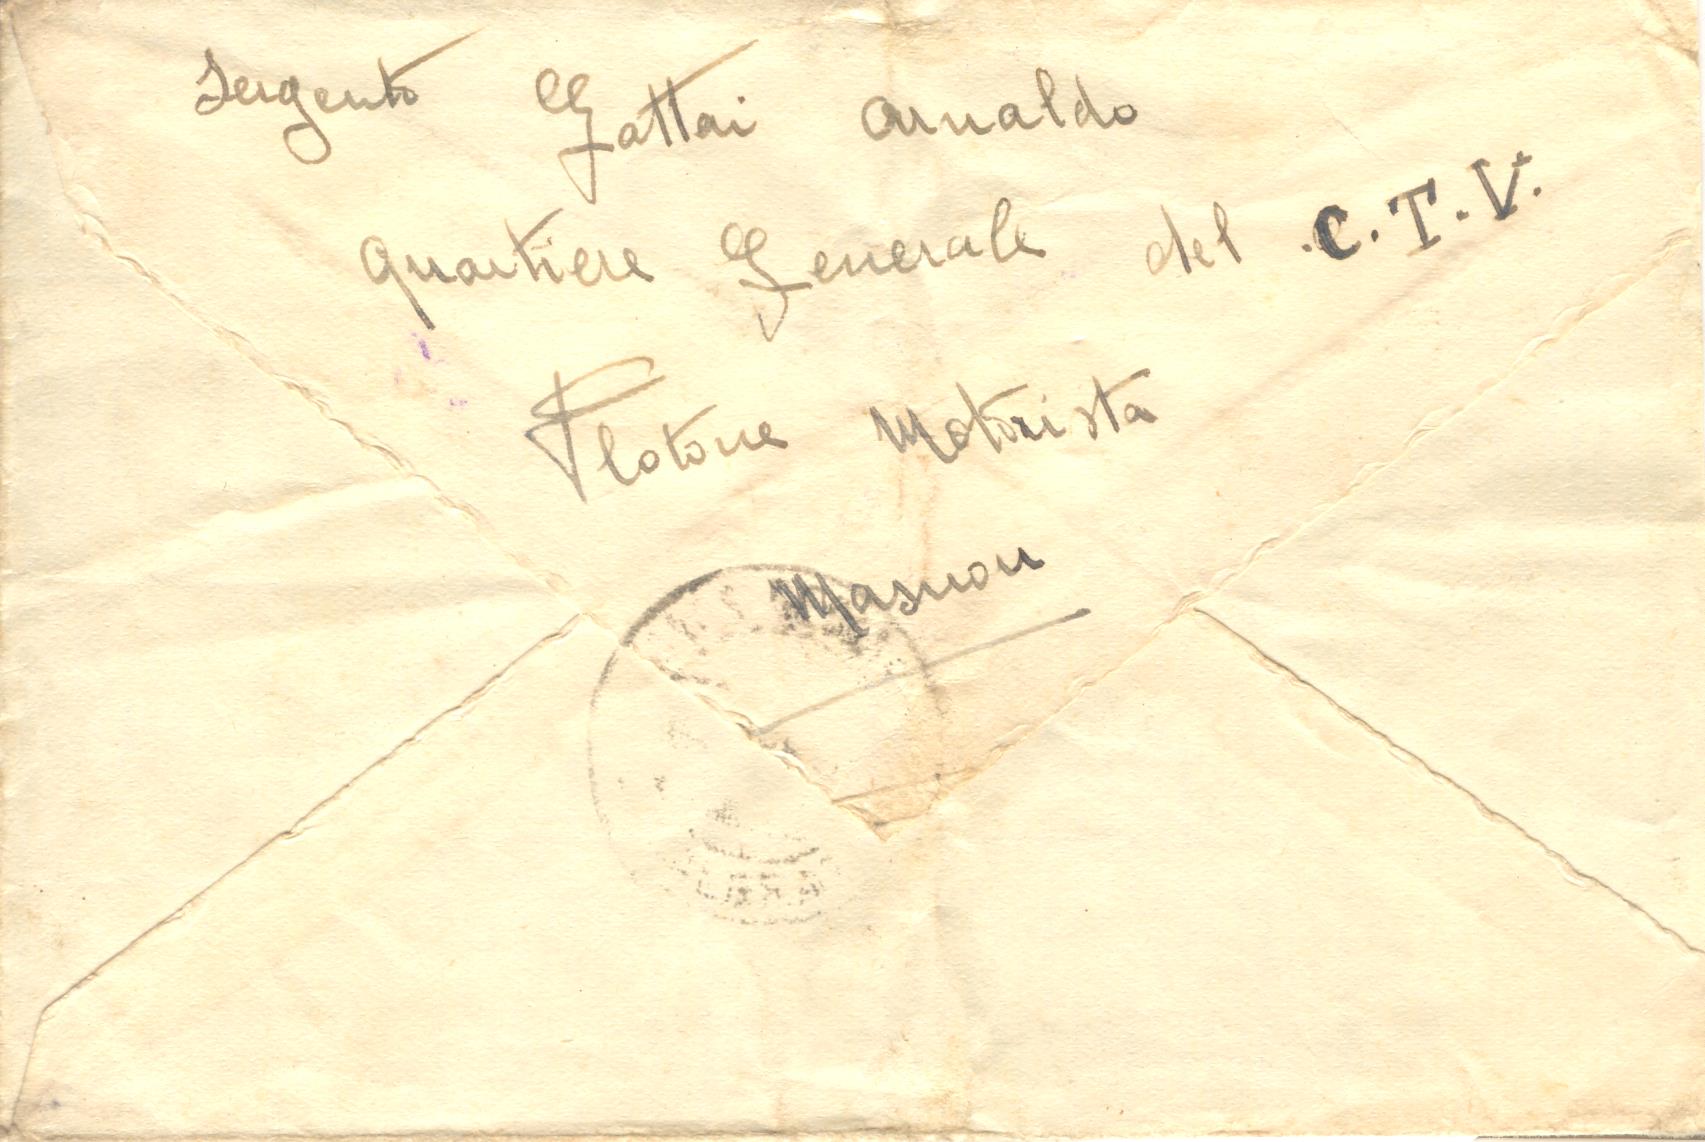 Sergente Gattai Arnaldo
Quartiere Generale del C.T.V.
Plotone Motorista